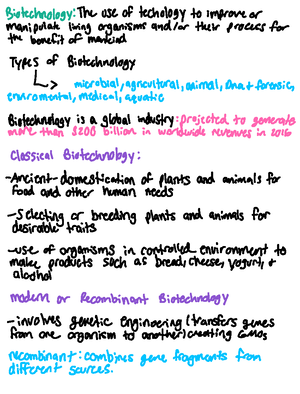 Biotechnology: The use of techology to improve or
manipulate living organisms and/or their process for
the benefit of mankind
Types of Biotechnology
microbial, agricultural, animal, Dna + forensic,
enviromental, medical, aquatic
Biotechnology is a global industry: projected to generate
more than $200 billion in worldwide revenues in 2016
Classical Biotechnology:
-Ancient- domestication of plants and animals for
food and other human needs
-selecting or breeding plants and animals for
desirable traits
-use of organisms in controlled environment to
make products such as bread, cheese, yogurt, +
alcohol
modern or Recombinant Biotechnology
-involves genetic engineering (transfers genes
from one organism to another) creating GMOs
recombinant: combines gene fragments from
different sources.